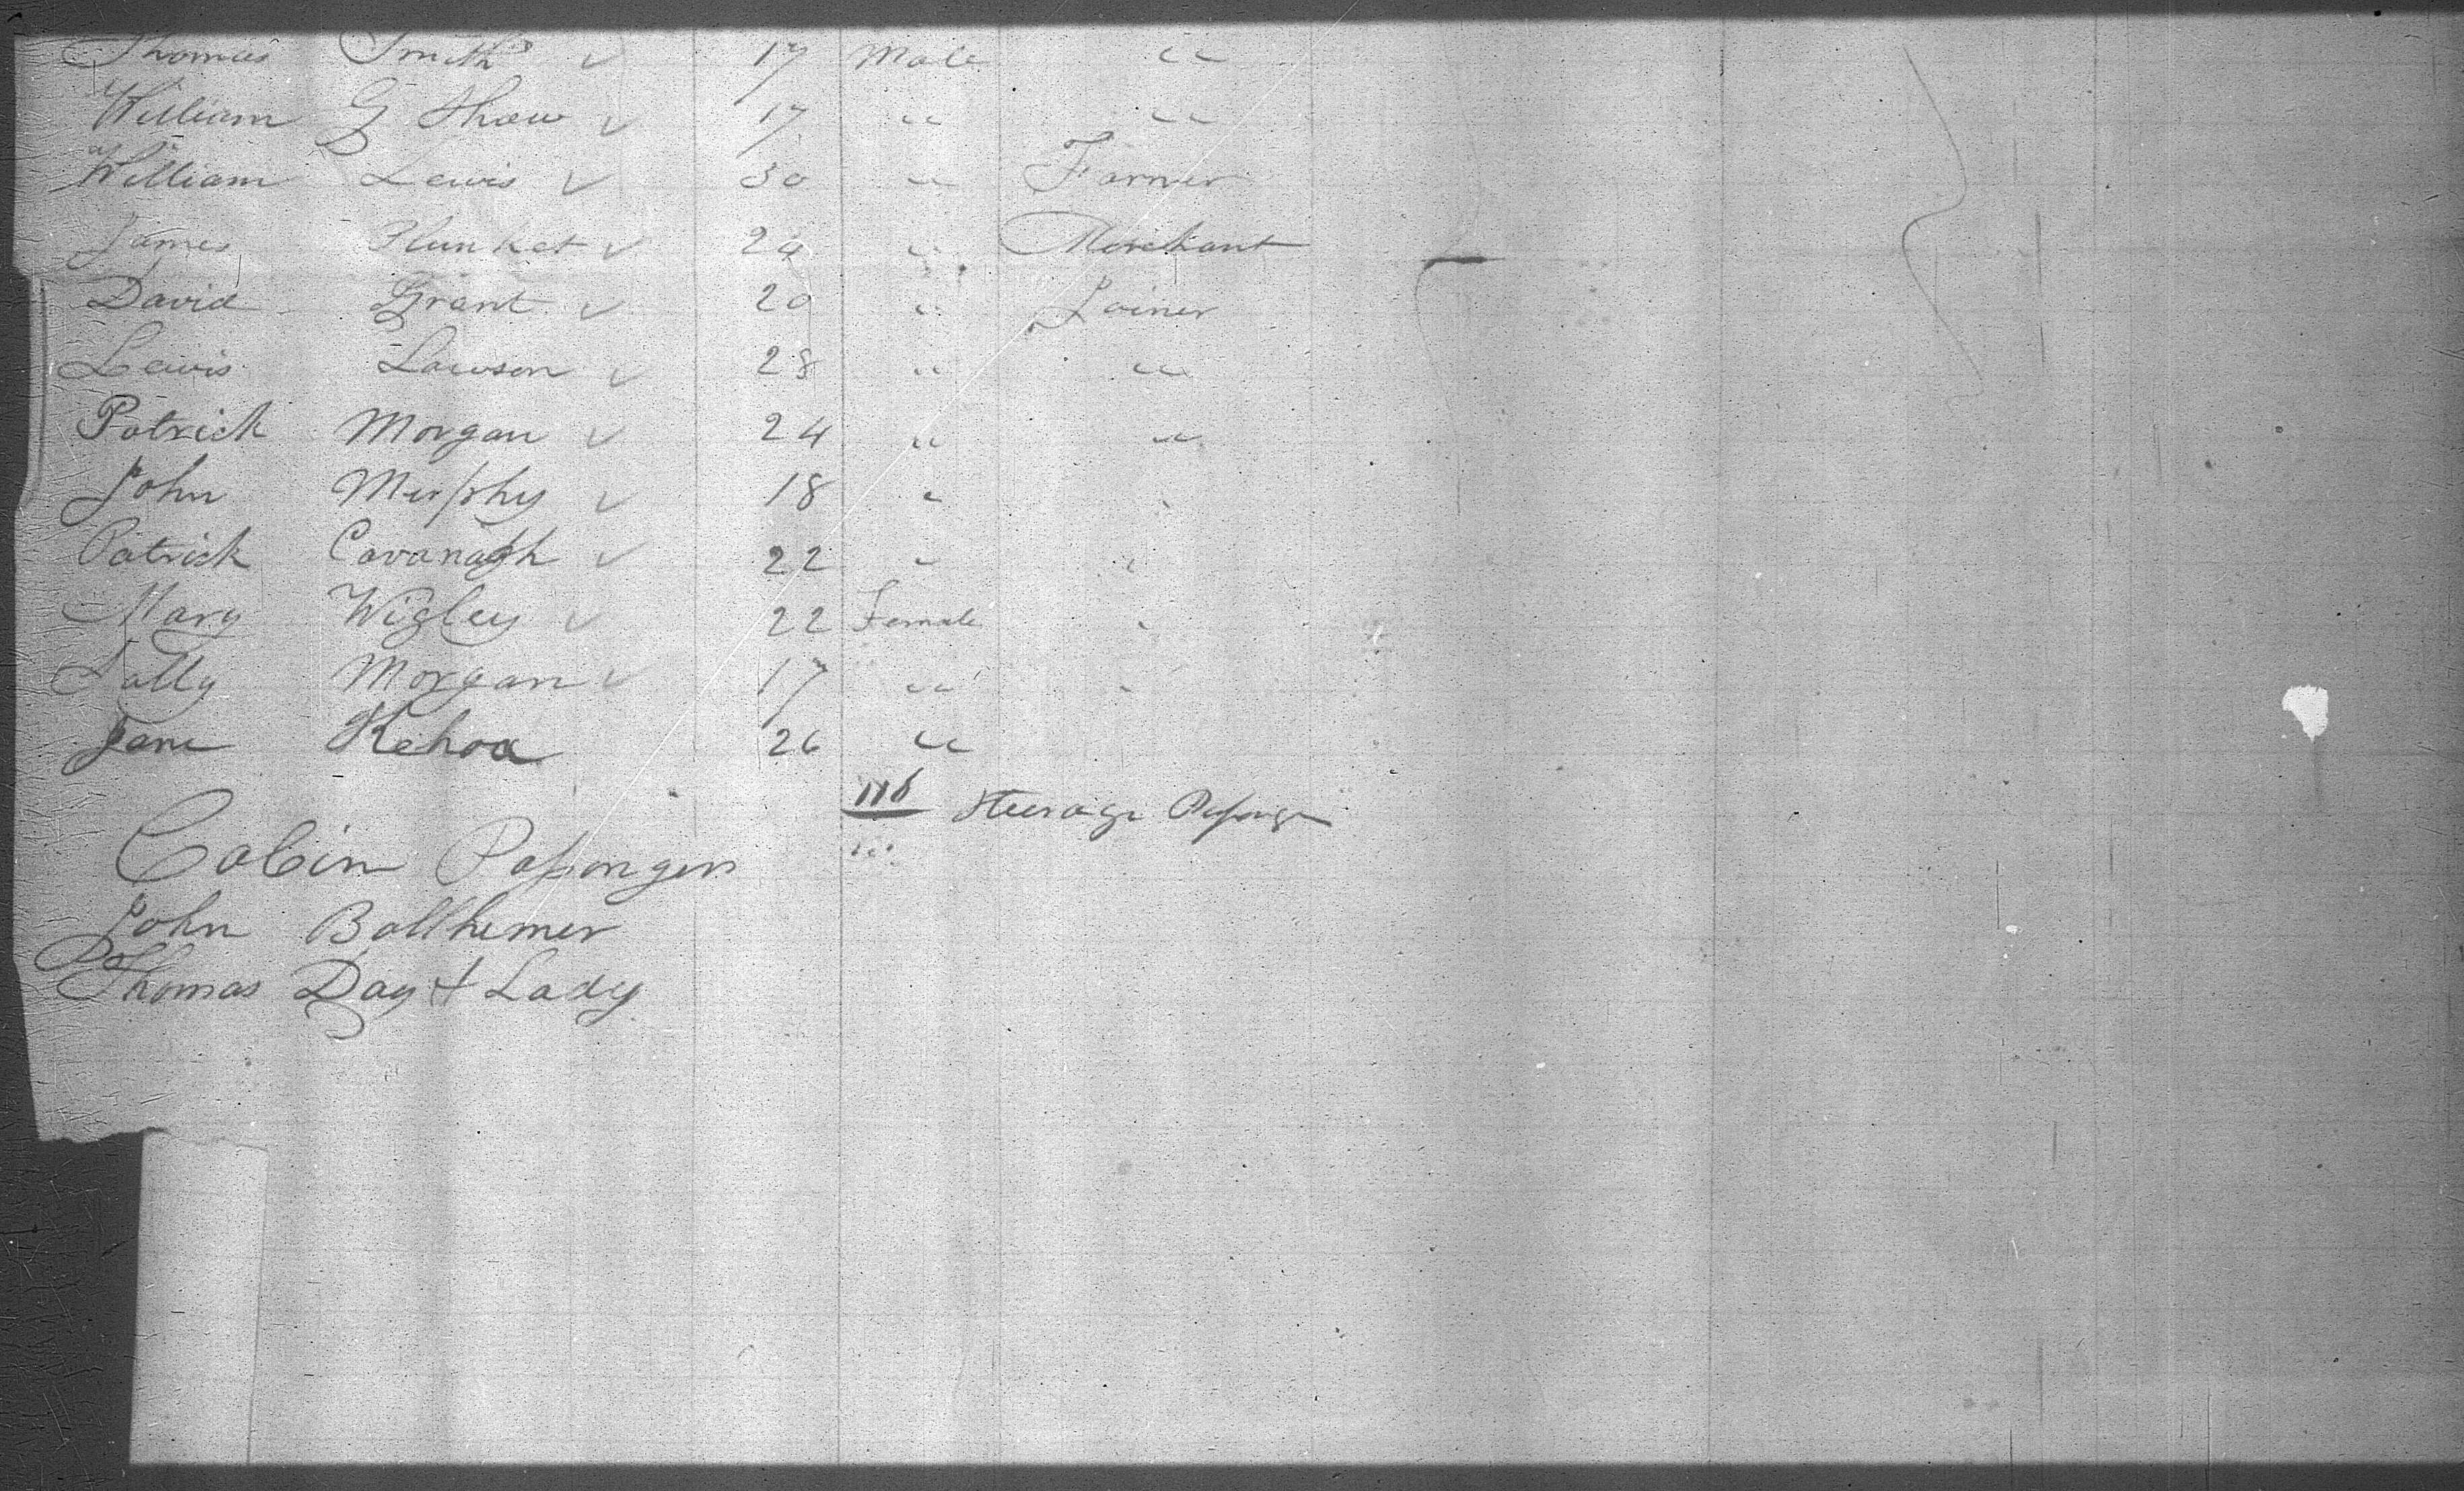 Thomas Smith ✓ 17 Male "
William G Shaw ✓ 17 " "
William Lewis ✓ 30 " Farmer
James Plunket ✓ 24 " Merchant
David Grant ✓ 20 " Joiner
Lewis Lawson ✓ 28 " "
Patrick Morgan ✓ 24 " "
John Murphy ✓ 18 " "
Patrick Cavanagh ✓ 22 " "
Mary Wigley ✓ 22 Female "
Sally Morgan ✓ 17 " "
Jane Kehoa 26 "
116 Steerage
Cabin Passengers
John Ballhemer
Thomas Day & Lady